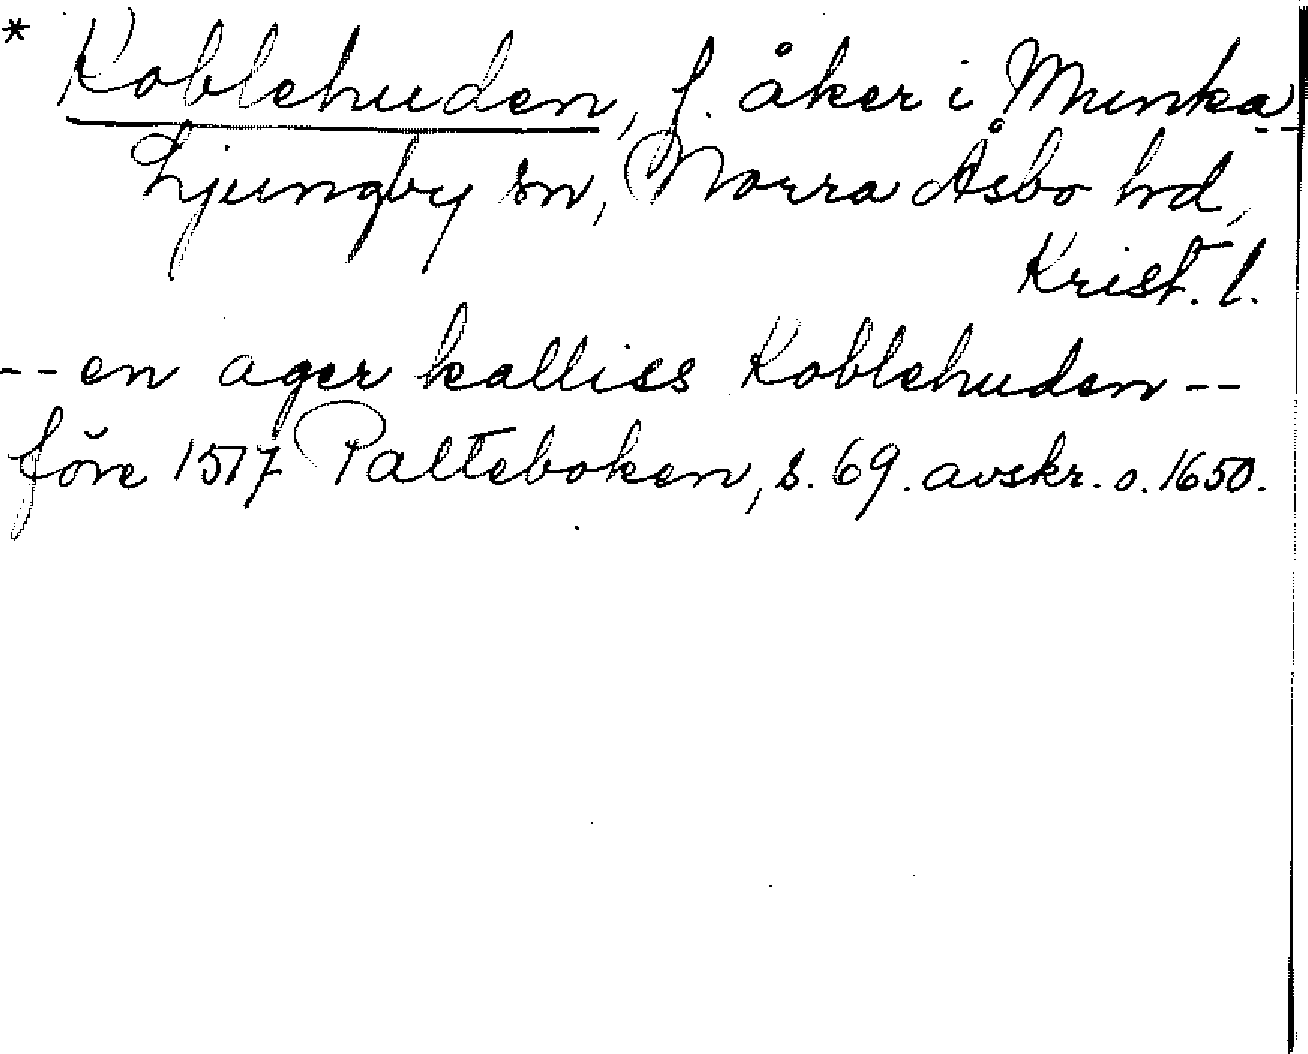 * Koblehuden, f. åker i Munka-
Ljungby sn, Norra Åsbo hd,
Krist. l.
-- en ager kalliss Koblehuden --
före 1517 Palteboken, s. 69. avskr. o. 1650.